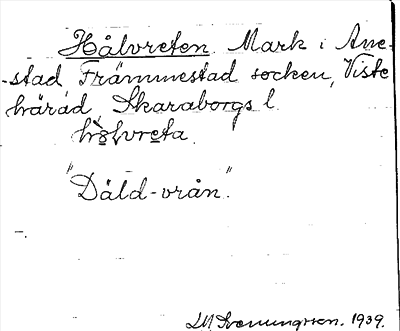 Hålvreten Mark i Ane-
-stad, Främmestad socken, Viste
härad, Skaraborgs l.
hɔlvreta
"Dåld-vrån".
1939.